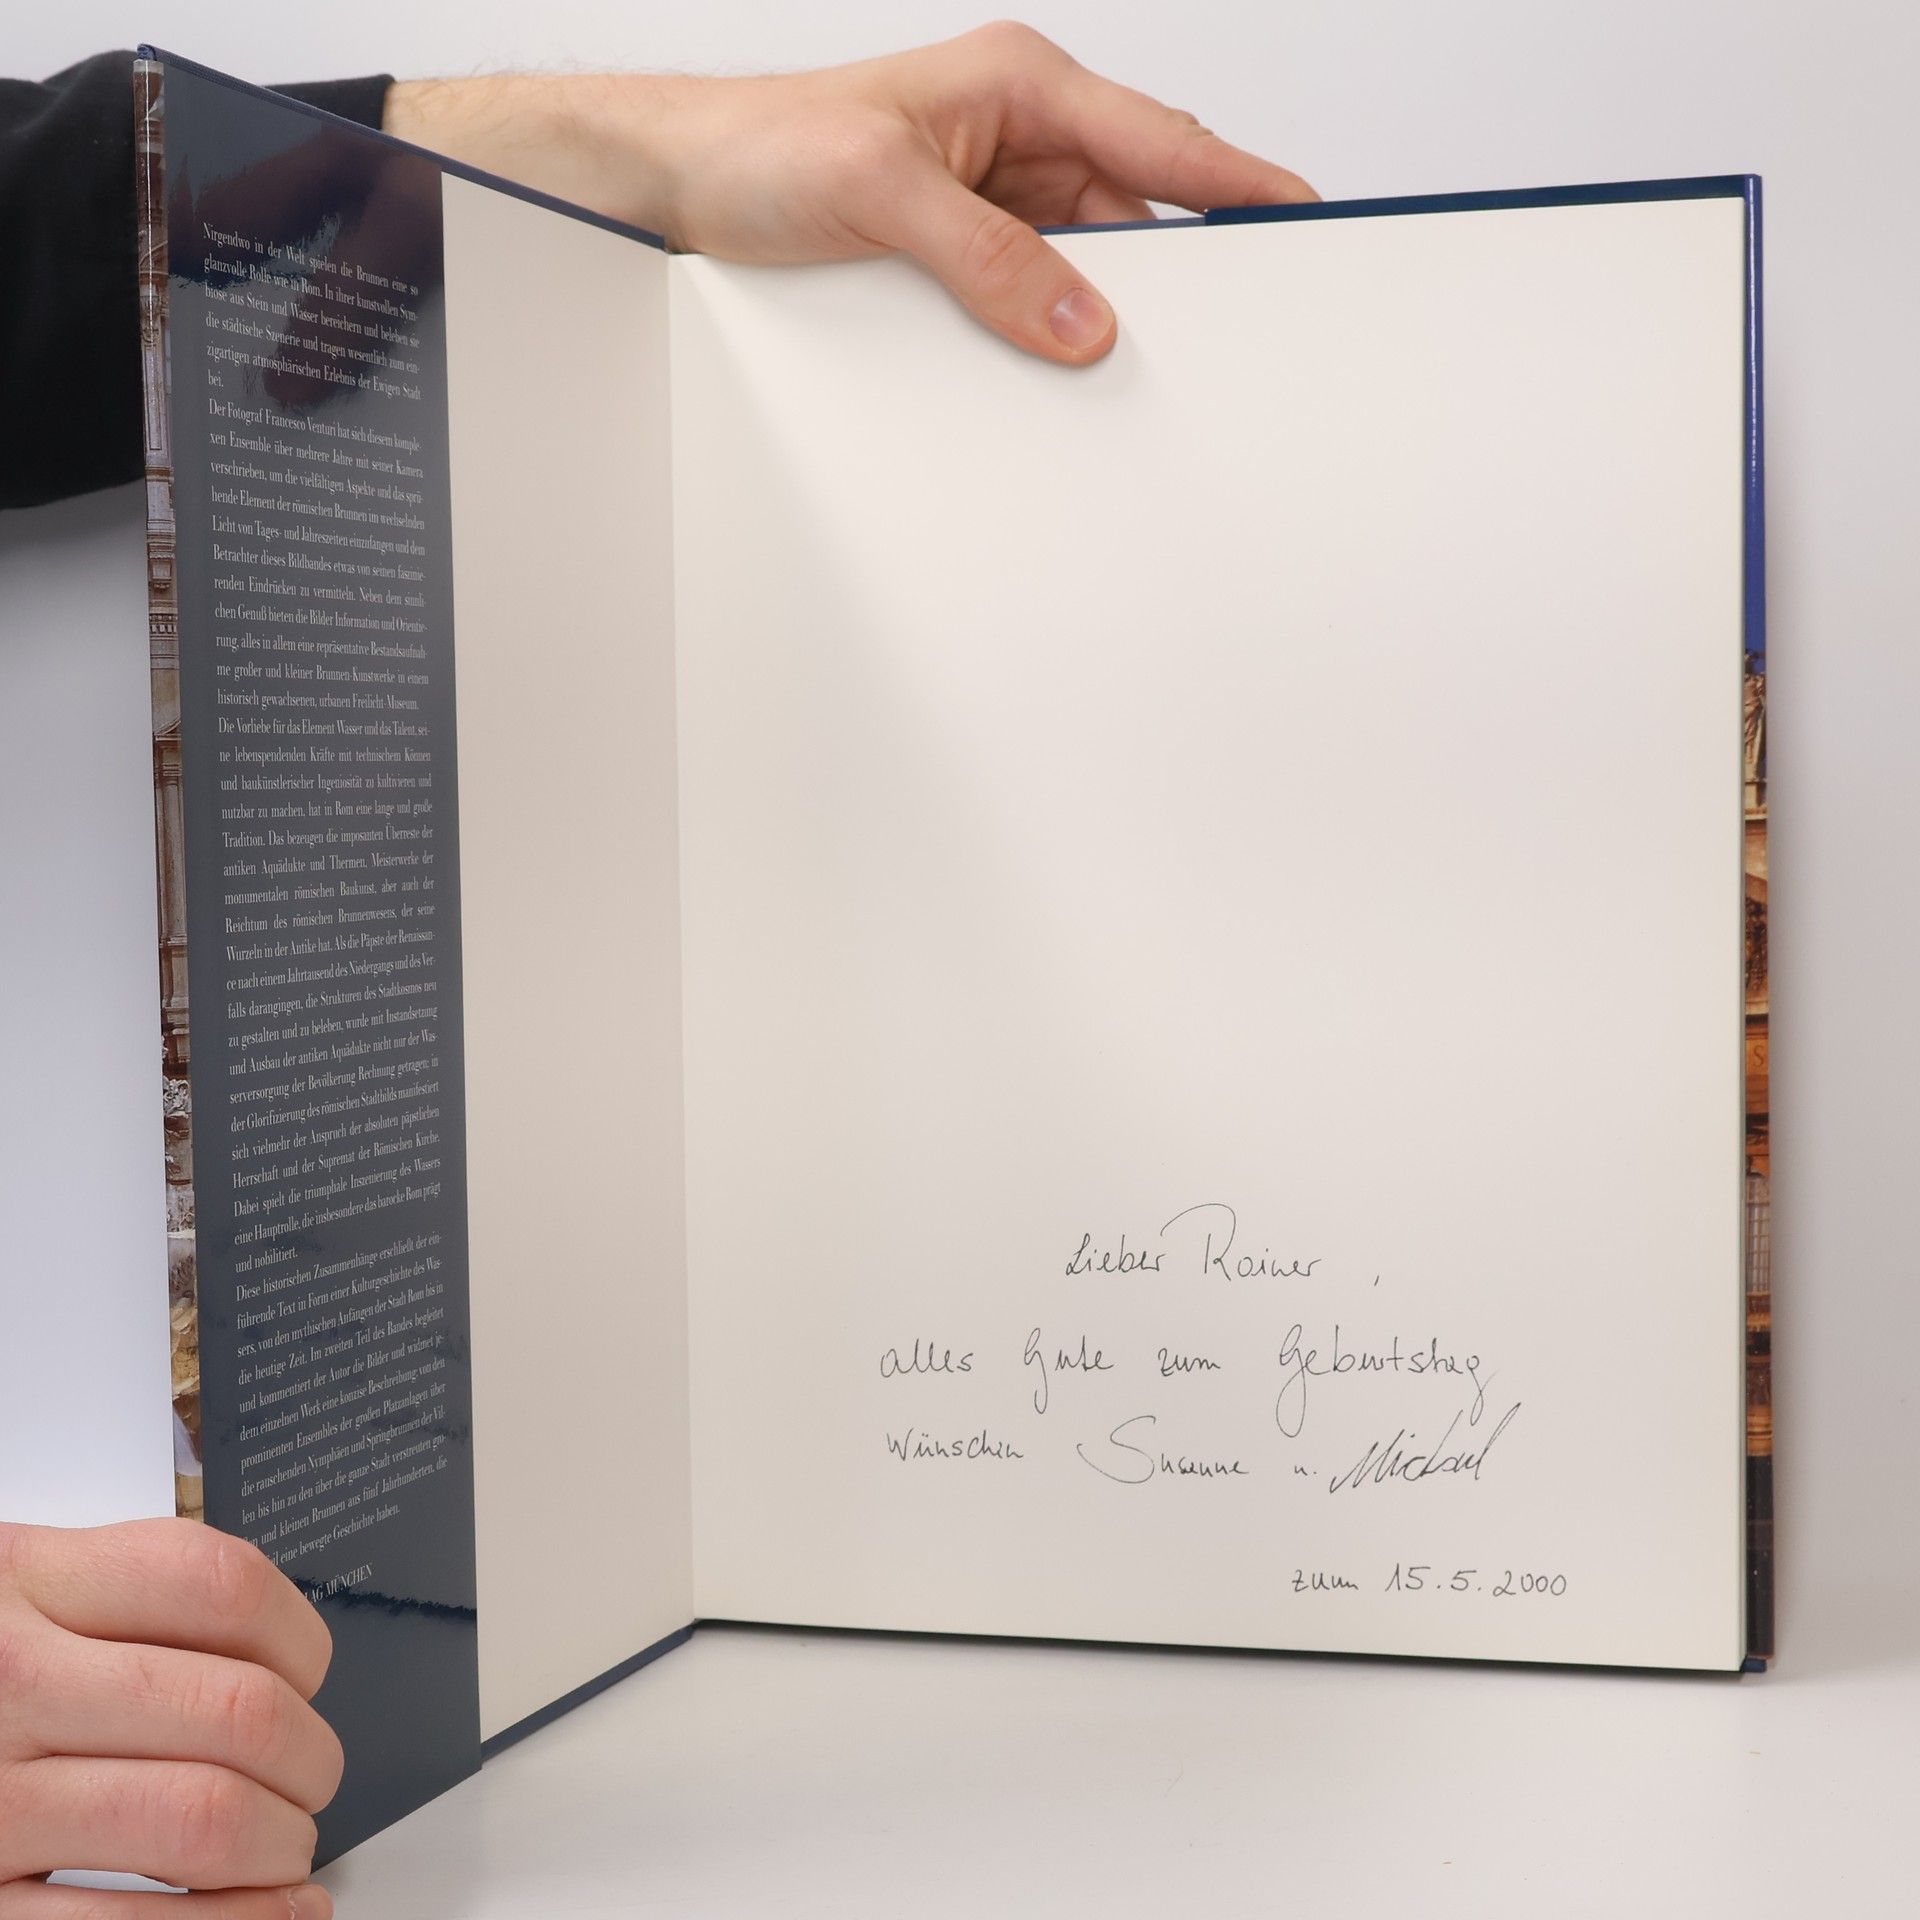 Nirgendwo in der Welt spielen die Brunnen eine so
glanzvolle Rolle wie in Rom. In ihrer kunstvollen Sym-
biose aus Stein und Wasser bereichern und beleben sie
die städtische Szenerie und tragen wesentlich zum ein-
zigartigen atmosphärischen Erlebnis der Ewigen Stadt
bei.
Der Fotograf Francesco Venturi hat sich diesem komple-
xen Ensemble über mehrere Jahre mit seiner Kamera
verschrieben, um die vielfältigen Aspekte und das sprü-
hende Element der römischen Brunnen im wechselnden
Licht von Tages- und Jahreszeiten einzufangen und dem
Betrachter dieses Bildbandes etwas von seinen faszinie-
renden Eindrücken zu vermitteln. Neben dem sinnli-
chen Genuß bieten die Bilder Information und Orientie-
rung, alles in allem eine repräsentative Bestandsaufnah-
me großer und kleiner Brunnen-Kunstwerke in einem
historisch gewachsenen, urbanen Freilicht-Museum.
Die Vorliebe für das Element Wasser und das Talent, sei-
ne lebenspendenden Kräfte mit technischem Können
und baukünstlerischer Ingeniosität zu kultivieren und
nutzbar zu machen, hat in Rom eine lange und große
Tradition. Das bezeugen die imposanten Überreste der
antiken Aquädukte und Thermen, Meisterwerke der
monumentalen römischen Baukunst, aber auch der
Reichtum des römischen Brunnenwesens, der seine
Wurzeln in der Antike hat. Als die Päpste der Renaissan-
ce nach einem Jahrtausend des Niedergangs und des Ver-
falls darangingen, die Strukturen des Stadtkosmos neu
zu gestalten und zu beleben, wurde mit Instandsetzung
und Ausbau der antiken Aquädukte nicht nur der Was-
serversorgung der Bevölkerung Rechnung getragen; in
der Glorifizierung des römischen Stadtbilds manifestiert
sich vielmehr der Anspruch der absoluten päpstlichen
Herrschaft und der Supremat der Römischen Kirche.
Dabei spielt die triumphale Inszenierung des Wassers
eine Hauptrolle, die insbesondere das barocke Rom prägt
und nobilitiert.
Diese historischen Zusammenhänge erschließt der ein-
führende Text in Form einer Kulturgeschichte des Was-
sers, von den mythischen Anfängen der Stadt Rom bis in
die heutige Zeit. Im zweiten Teil des Bandes begleitet
und kommentiert der Autor die Bilder und widmet je-
dem einzelnen Werk eine konzise Beschreibung: von den
prominenten Ensembles der großen Platzanlagen über
die rauschenden Nymphäen und Springbrunnen der Vil-
len bis hin zu den über die ganze Stadt verstreuten gro-
und kleinen Brunnen aus fünf Jahrhunderten, die
eine bewegte Geschichte haben.
LAG MÜNCHEN
Lieber Rainer,
alles Gute zum Geburtstag
wünschen Susanne u. Michael
zum 15.5.2000